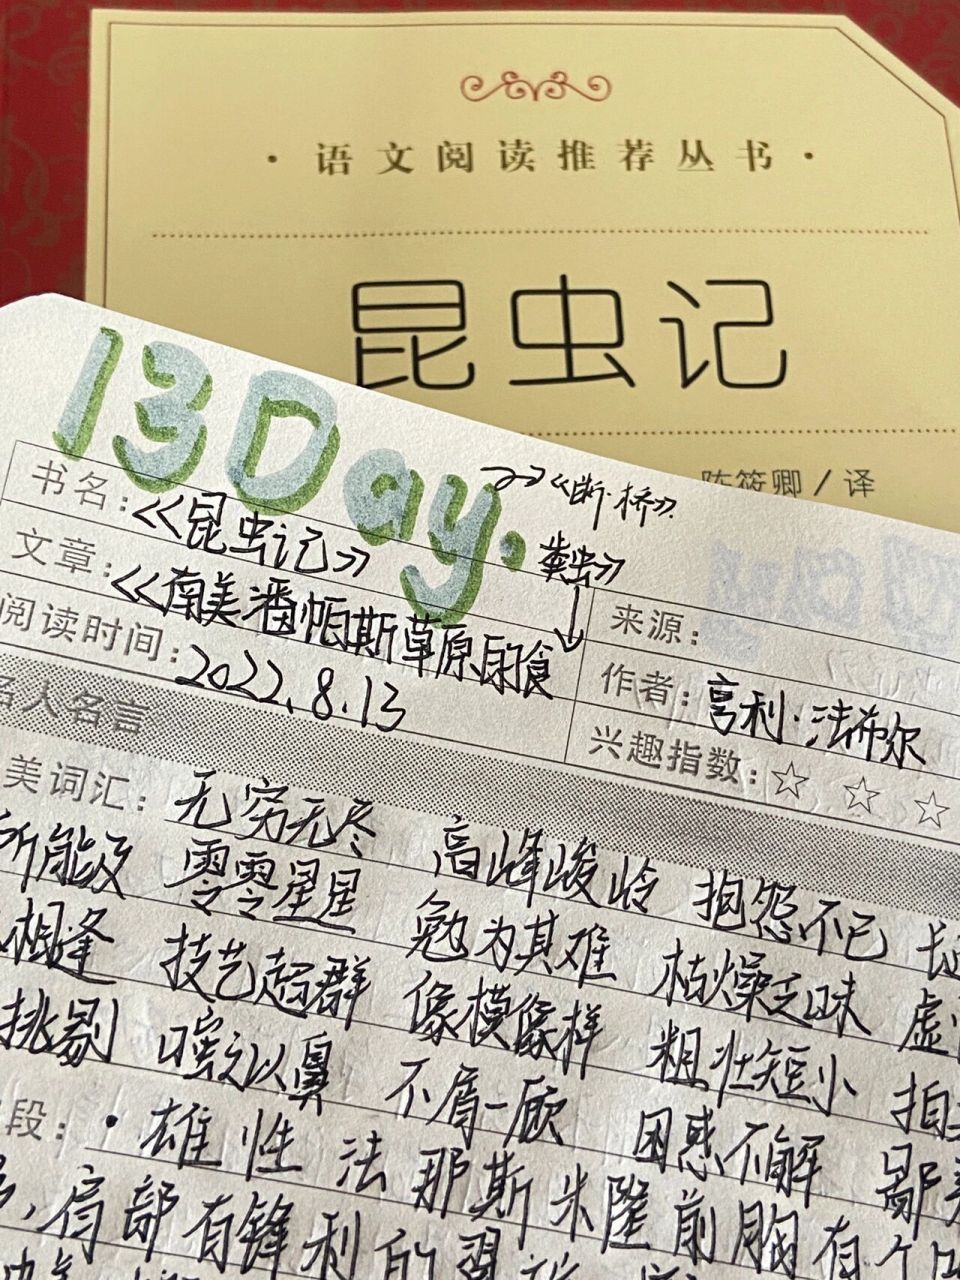 ·语文阅读推荐丛书·
昆虫记
陈筱卿/译
13 Day.
→《断·桥》
书名:《昆虫记》
粪虫》
文章:《南美潘帕斯草原的食
来源:
阅读时间:2022.8.13
作者:亨利·法布尔
名人名言
兴趣指数:☆ ☆ ☆
美词汇:无穷无尽 高峰峻岭 抱怨不已
所能及 零零星星 勉为其难 枯燥乏味
相逢 技艺超群 像模像样 粗壮短小
挑剔 嗤之以鼻 不屑一顾 困惑不解
段:·雄性法那斯米隆前胸有个
,肩部有锋利的翼